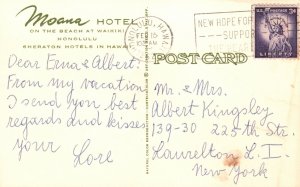 Moana HOTEL
ON THE BEACH AT WAIKIKI
HONOLULU
SHERATON HOTELS IN HAWAII
HONOLULU, HAWAII
FEB
NEW HOPE FOR
SUPPO
U.S. POSTAGE 3¢
LIBERTY
POST CARD
Dear Erna & Albert:
From my vacation
I send you best
regards and kisses
your Lore
Mr. & Mrs.
Albert Kingsley
139-30 225th Str.
Laurelton L. I.
New York